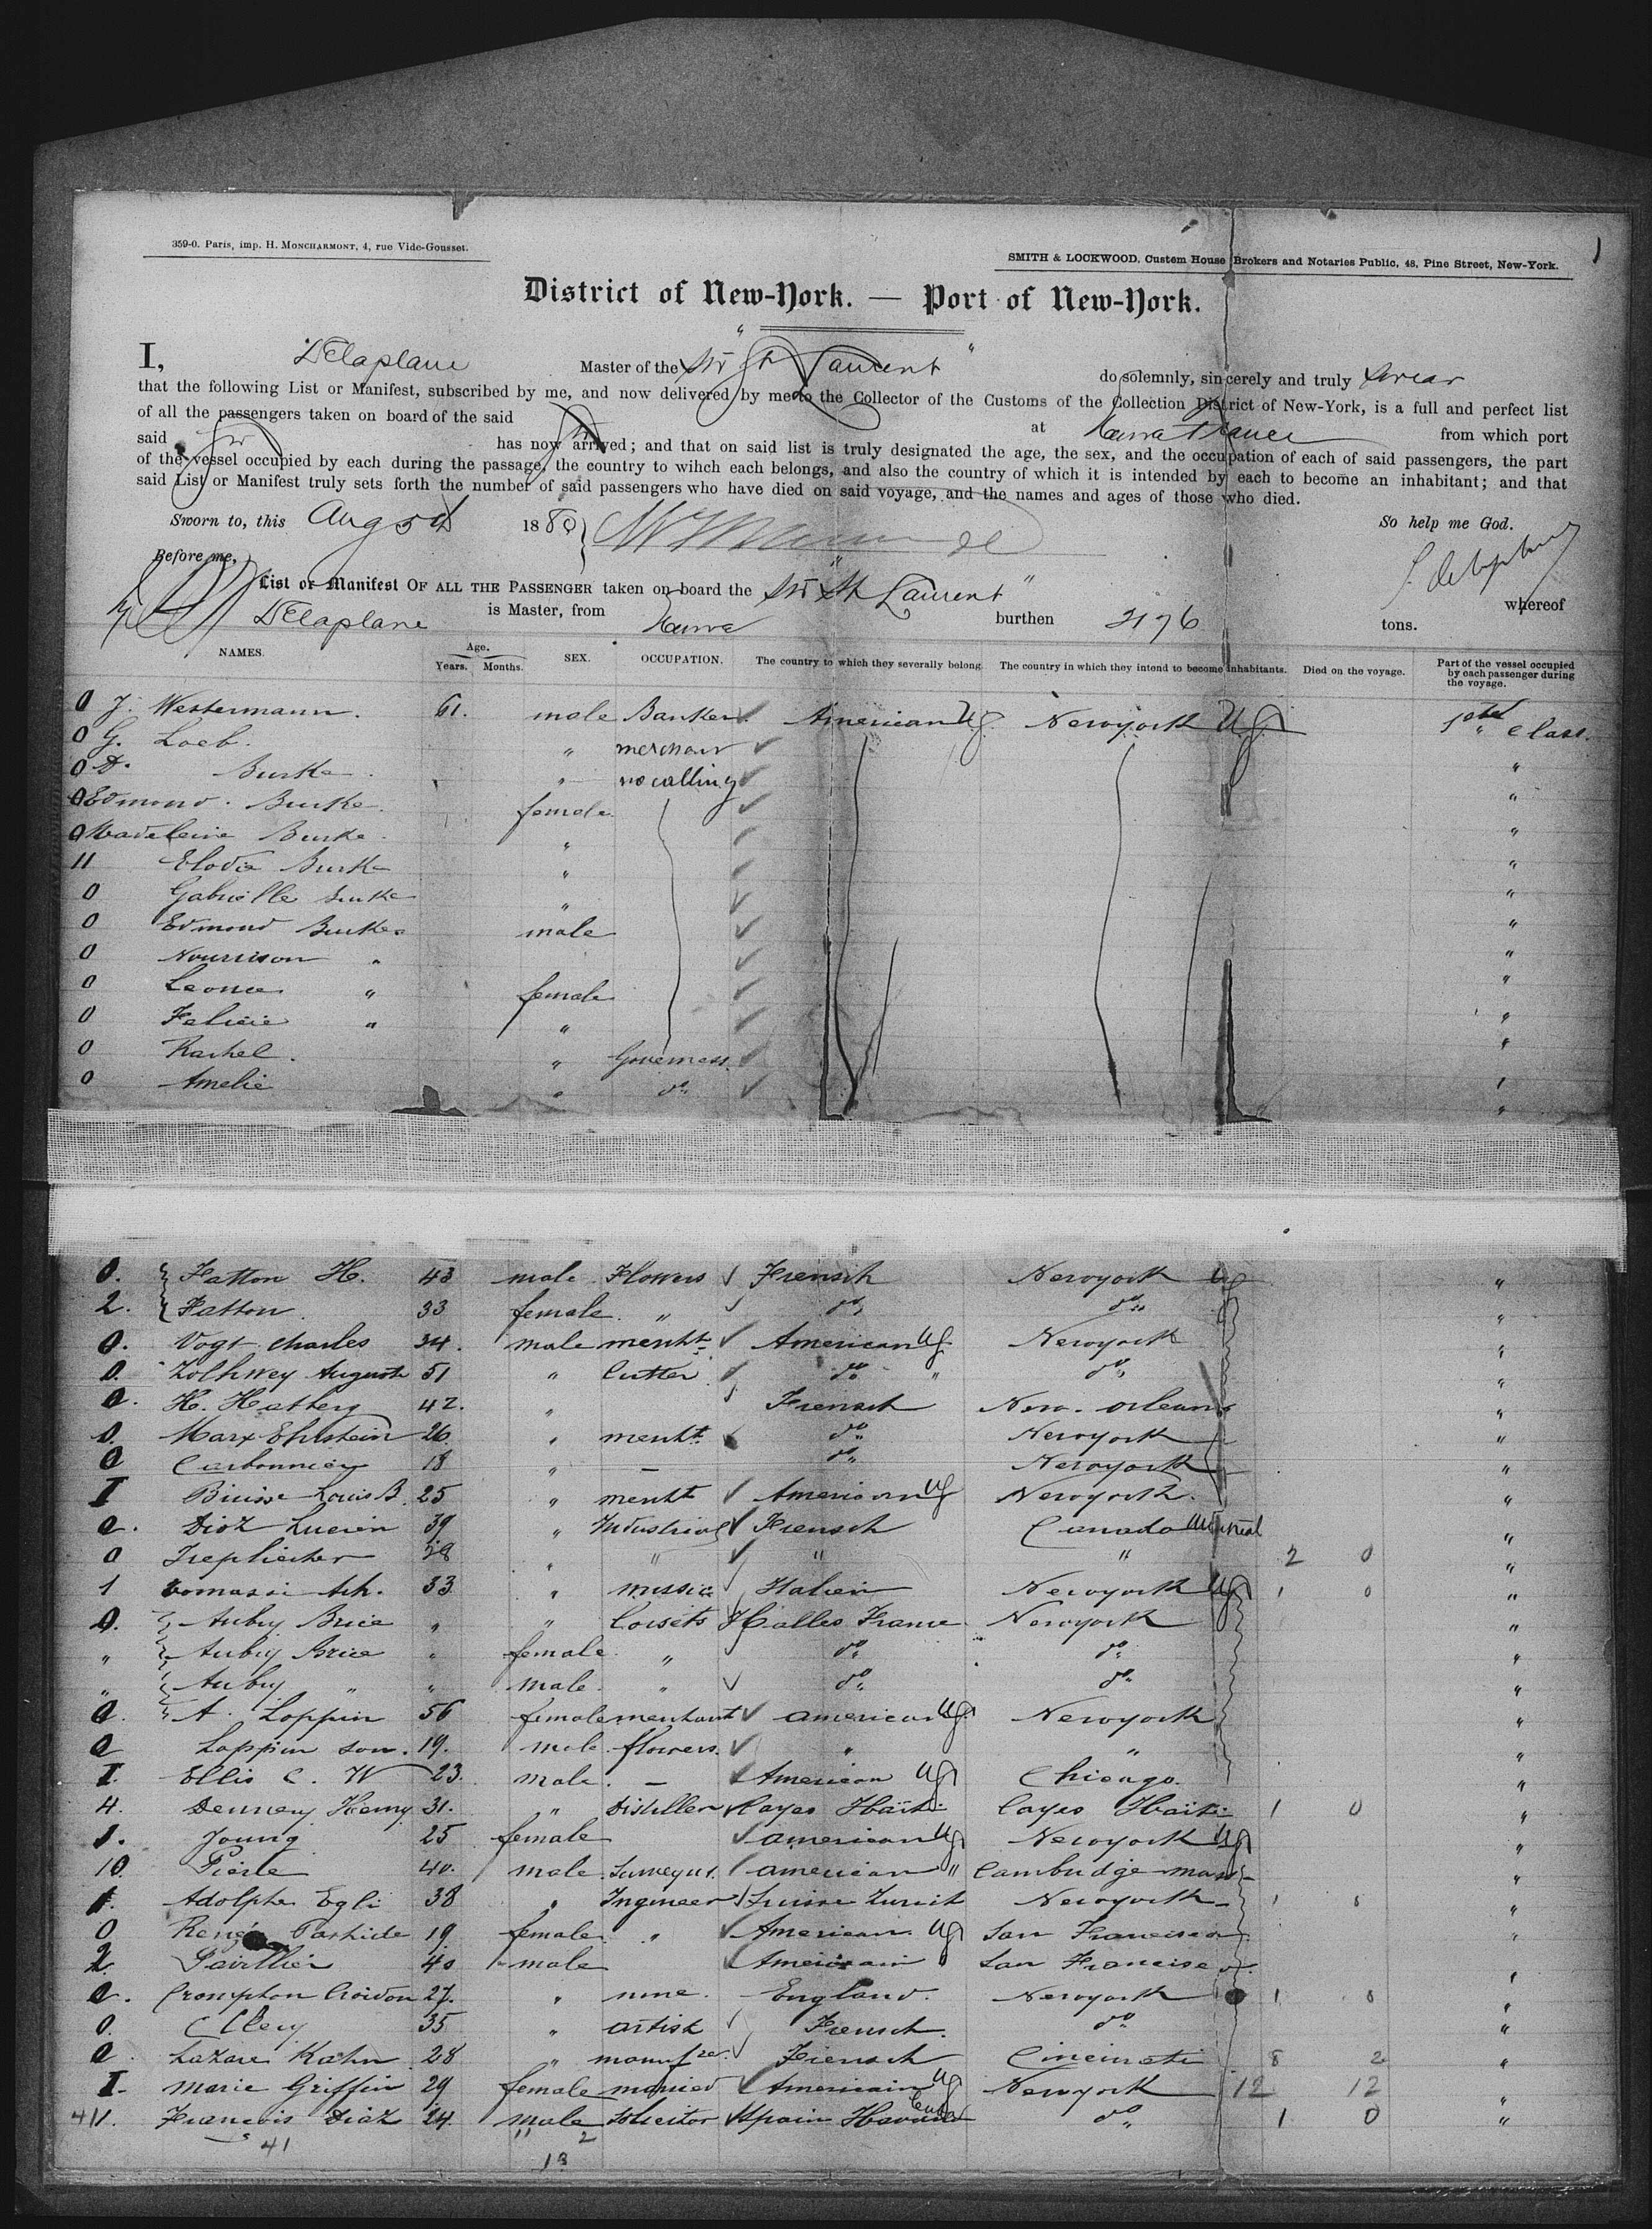 359-0. Paris, imp. H. MONCHARMONT, 4, rue Vide-Gousset.
SMITH & LOCKWOOD, Custem House Brokers and Notaries Public, 48, Pine Street, New-York.
1
District of New-York. — Port of New-York.
I, DElaplane Master of the Str "St Laurent" do solemnly, sincerely and truly swear
that the following List or Manifest, subscribed by me, and now delivered by me to the Collector of the Customs of the Collection District of New-York, is a full and perfect list
of all the passengers taken on board of the said at Havre France from which port
said Str has now arrived; and that on said list is truly designated the age, the sex, and the occupation of each of said passengers, the part
of the vessel occupied by each during the passage, the country to wihch each belongs, and also the country of which it is intended by each to become an inhabitant; and that
said List or Manifest truly sets forth the number of said passengers who have died on said voyage, and the names and ages of those who died.
Sworn to, this Aug 5th 1880 So help me God.
Before me,
List or Manifest OF ALL THE PASSENGER taken on board the Str "St Laurent" whereof
DElaplane is Master, from Havre burthen 2176 tons.
NAMES. Age. Years. Months. SEX. OCCUPATION. The country to which they severally belong. The country in which they intend to become inhabitants. Died on the voyage. Part of the vessel occupied by each passenger during the voyage.
0 J. Westermann. 61. male Banker American Newyork 1st class.
0 G. Loeb. " "
0 D. Burke. " no calling "
0 Edmond. Burke. female "
0 Madeleine Burke. " "
11 Elodie Burke " "
0 Gabrielle Burke " "
0 Edmond Burke male "
0 Nourrison " "
0 Leonce " female "
0 Felicie " " "
0 Rachel. " Governess "
0 Amelie " do "
0. Fatton H. 43 male Flowers Frensch Newyork "
2. Fatton 33 female " do do "
0. Vogt Charles 34. male mercht American Newyork "
0. Zolhwey Auguste 51 " Cutter do " do "
0. H. Hatberg 42. " Frensch New. orleans "
0. Marx Ehrstein 26. " mercht do Newyork "
0 Carbonnier 18 " — do Newyork "
I Biuisse Louis B. 25 " mercht American Newyork. "
0. Dioz Lucien 39 " Industrial Frensch Canada Montreal "
0 28 " " " " 2 0 "
1 33 " Italien Newyork 1 0 "
0. Aubry Brice " " Corsets France Newyork "
" Aubry Brice " female " do do "
" Aubry " " male " do do "
0. A. Loppin 56 female merchant american Newyork "
0 Loppin son. 19. male flowers. " " "
I. Ellis C. W 23. male. — American Chicago. "
4. Dennery Henry 31. " Distiller Cayes Haïti Cayes Haïti 1 0 "
1. Young 25 female american Newyork "
10. Pierle 40. male Surveyor. american " Cambridge mass "
1. Adolphe Egli 38 " Ingineer Suisse Zurich Newyork 1 0 "
0 19 female " American San Francisco "
2. Pavillier 40 male Americain San Francisco. "
0. Crompton 27. " none. England. Newyork 1 0 "
0. Clery 35 " artist Frensch. do "
0. Lazare Kahn 28 " Frensch Cincinati 8 2 "
I. Marie Griffin 29 female married Americain Newyork 12 12 "
411. Francois Diaz 24. male solicitor Spain Havana Cuba do 1 0 "
41